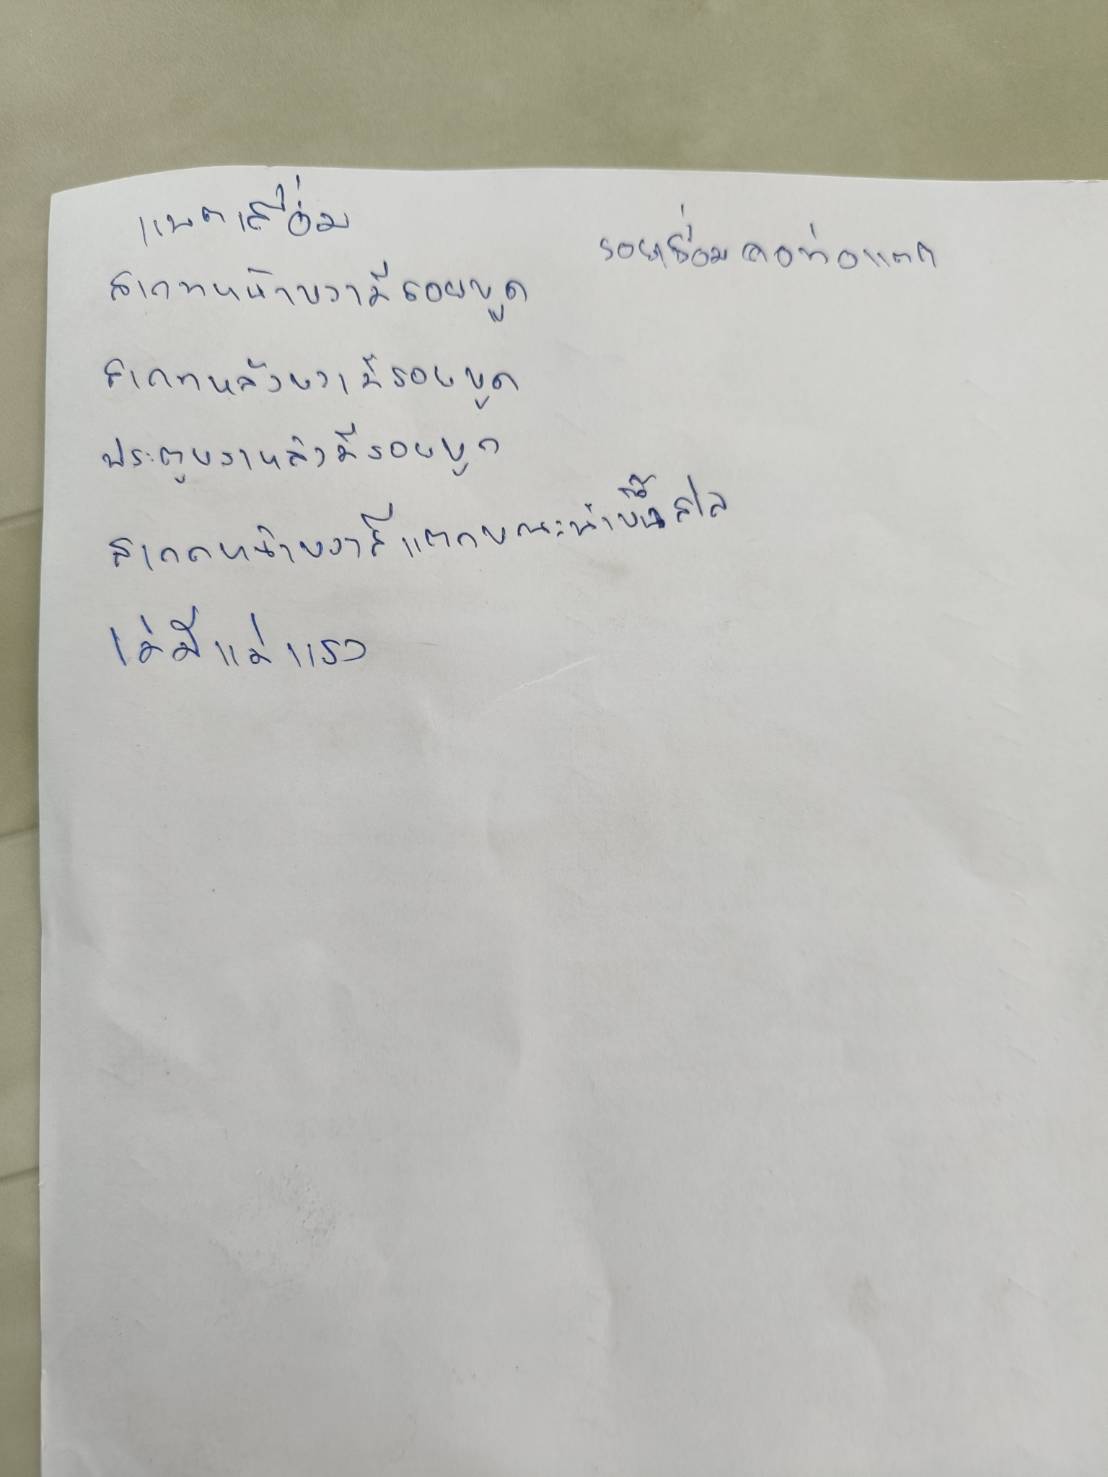 แบตเสื่อม
รอยเชื่อมคอท่อแตก
สเกทหน้าขวามีรอยขูด
สเกทหลังขวามีรอยขูด
ประตูขวาหลังมีรอยขูด
สเกตหน้าขวาสีแตกขณะนำขึ้นสไล
ไม่มีแม่แรง